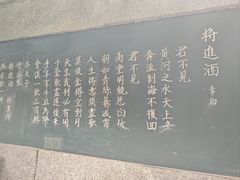 將進酒
李白
君不見
黃河之水天上來
奔流到海不復回
君不見
高堂明鏡悲白髮
朝如青絲暮成雪
人生得意須盡歡
莫使金樽空對月
天生我材必有用
千金散盡還復來
烹羊宰牛且為樂
會須一飲三百杯
岑夫子
丹丘生
將進酒